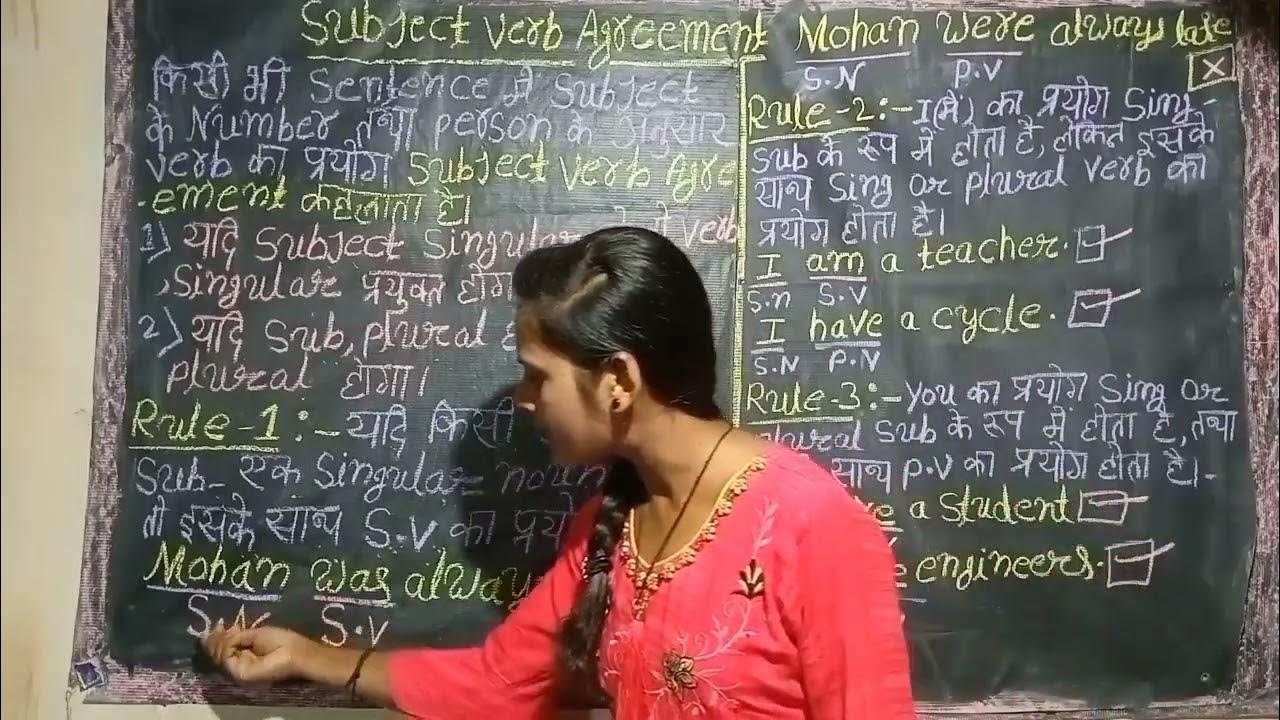 Subject verb Agreement
किसी भी Sentence में Subject
के Number तथा person के अनुसार
verb का प्रयोग Subject verb Agre
-ement कहलाता है।
1) यदि Subject Singular verb
, Singular प्रयुक्त होगा
2) यदि Sub, plural
plural होगा।
Rule-1:- यदि किसी
Sub- एक Singular noun
तो इसके साथ S.V का
Mohan was always
S.N S.V
Mohan were always late
S.N P.V
×
Rule-2:- I(मैं) का प्रयोग Sing-
Sub के रूप में होता है, लेकिन इसके
साथ Sing or plural verb का
प्रयोग होता है।
I am a teacher.
S.n S.V
I have a cycle.
S.N P.V
Rule-3:- You का प्रयोग Sing or
plural Sub के रूप में होता है, तथा
साथ P.V का प्रयोग होता है।-
a Student
engineers.